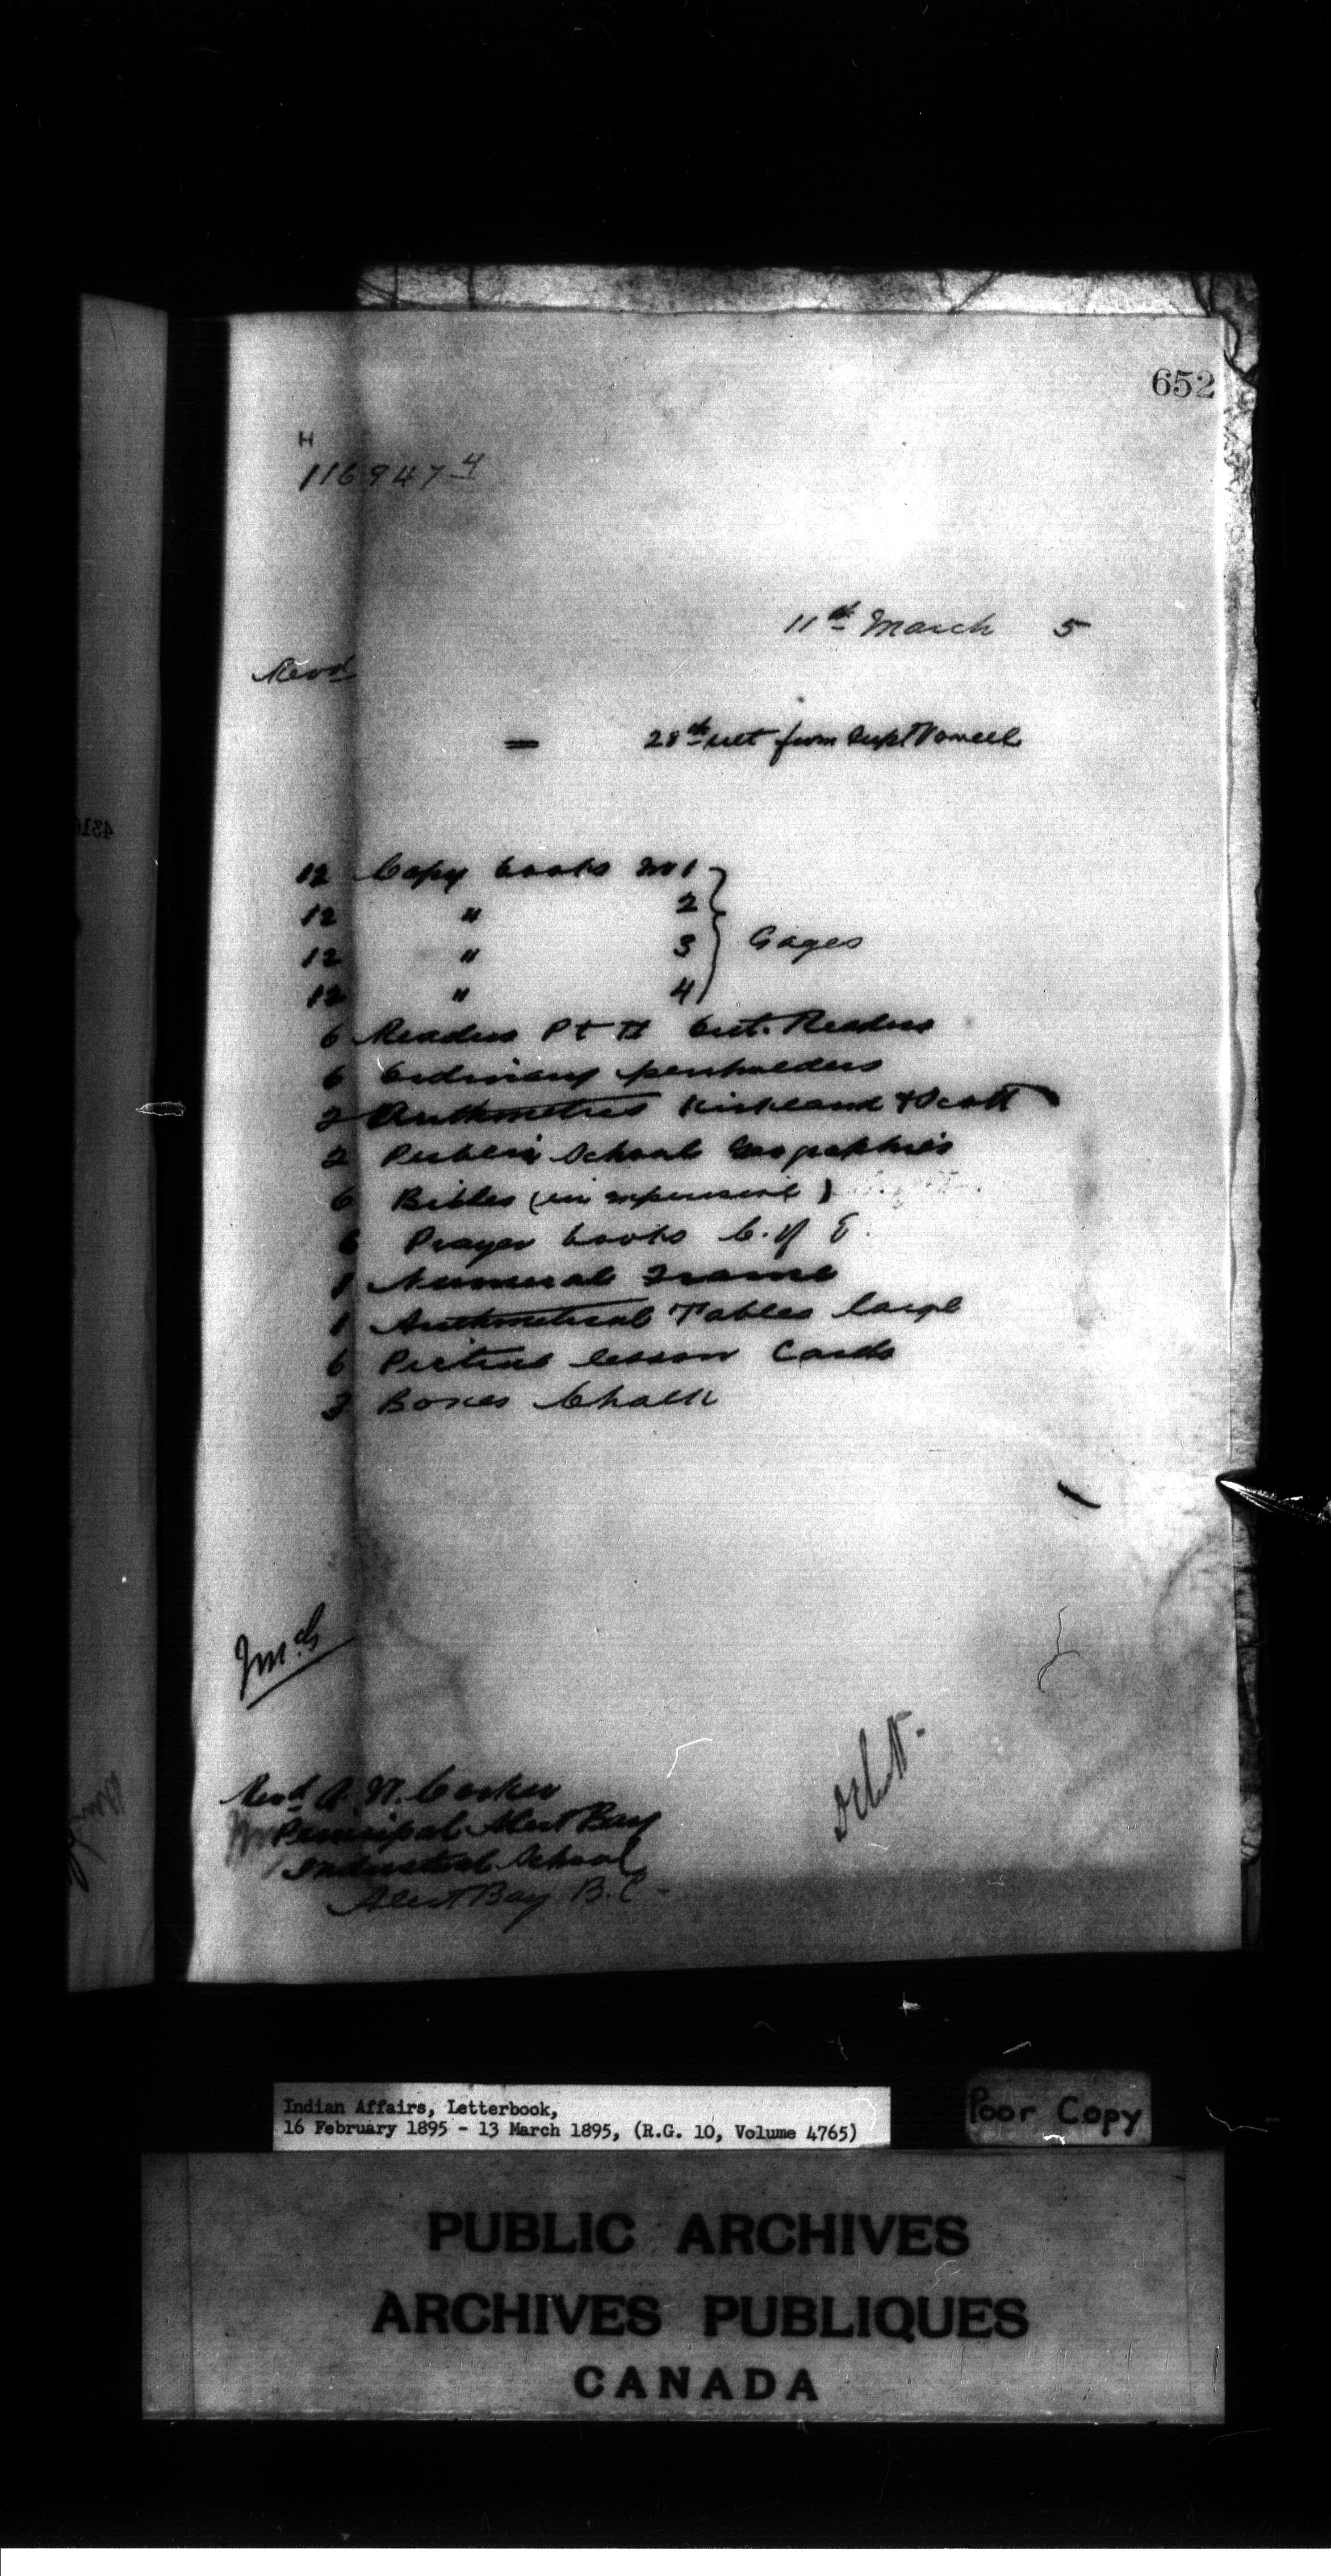 652
H
116947 4
11th March 5
Revd
= 28th ult from Supt Vowell
12 Copy books No 1
12 " 2
12 " 3 Gages
12 " 4
6 Readers Pt II Ont. Readers
6 Ordinary penholders
2 Arithmetics Kirkland & Scott
2 Public School Geographies
6 Bibles (inexpensive)
6 Prayer books C. of E.
1 Numeral Frame
1 Arithmetical Tables large
6 Picture lesson Cards
3 Boxes Chalk
Revd A. W. Corker
Principal Alert Bay
Industrial School,
Alert Bay B.C.
Indian Affairs, Letterbook,
16 February 1895 - 13 March 1895, (R.G. 10, Volume 4765)
Poor Copy
PUBLIC ARCHIVES
ARCHIVES PUBLIQUES
CANADA